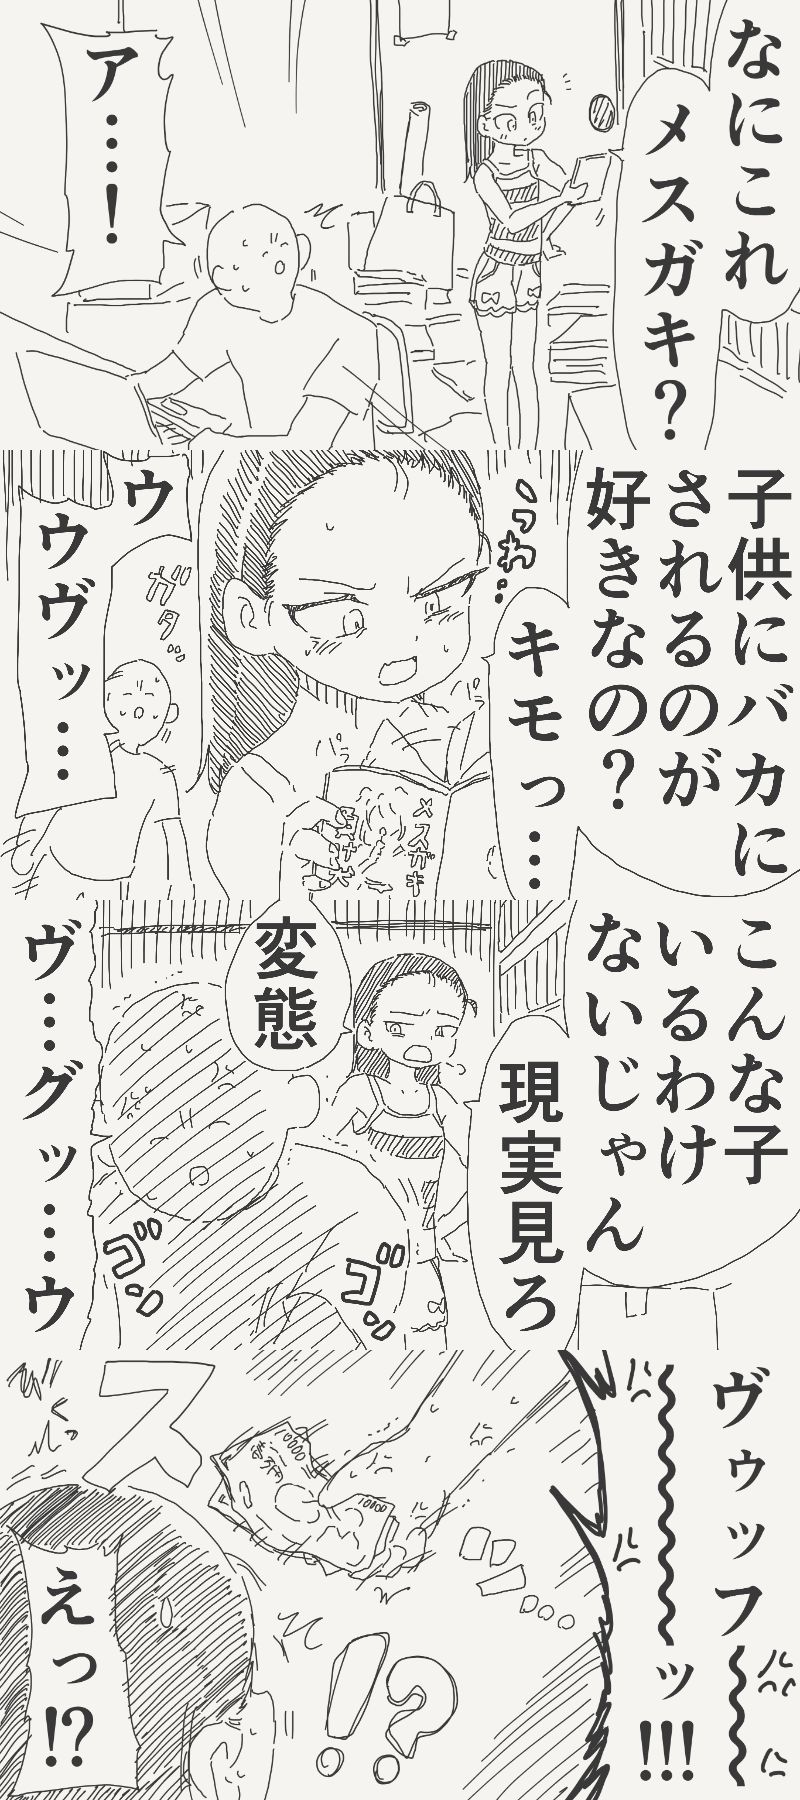 なにこれ
メスガキ?
ア…!
子供にバカに
されるのが
好きなの?
うわ…
キモっ…
メスガキ
ガタッ
ウ
ウヴッ…
こんな子
いるわけ
ないじゃん
現実見ろ
変態
ゴゴッ
ゴゴッ
ヴ…グッ…ウ
ヴゥッフ
ッ!!!
10000
10000
ス
!?
えっ!?